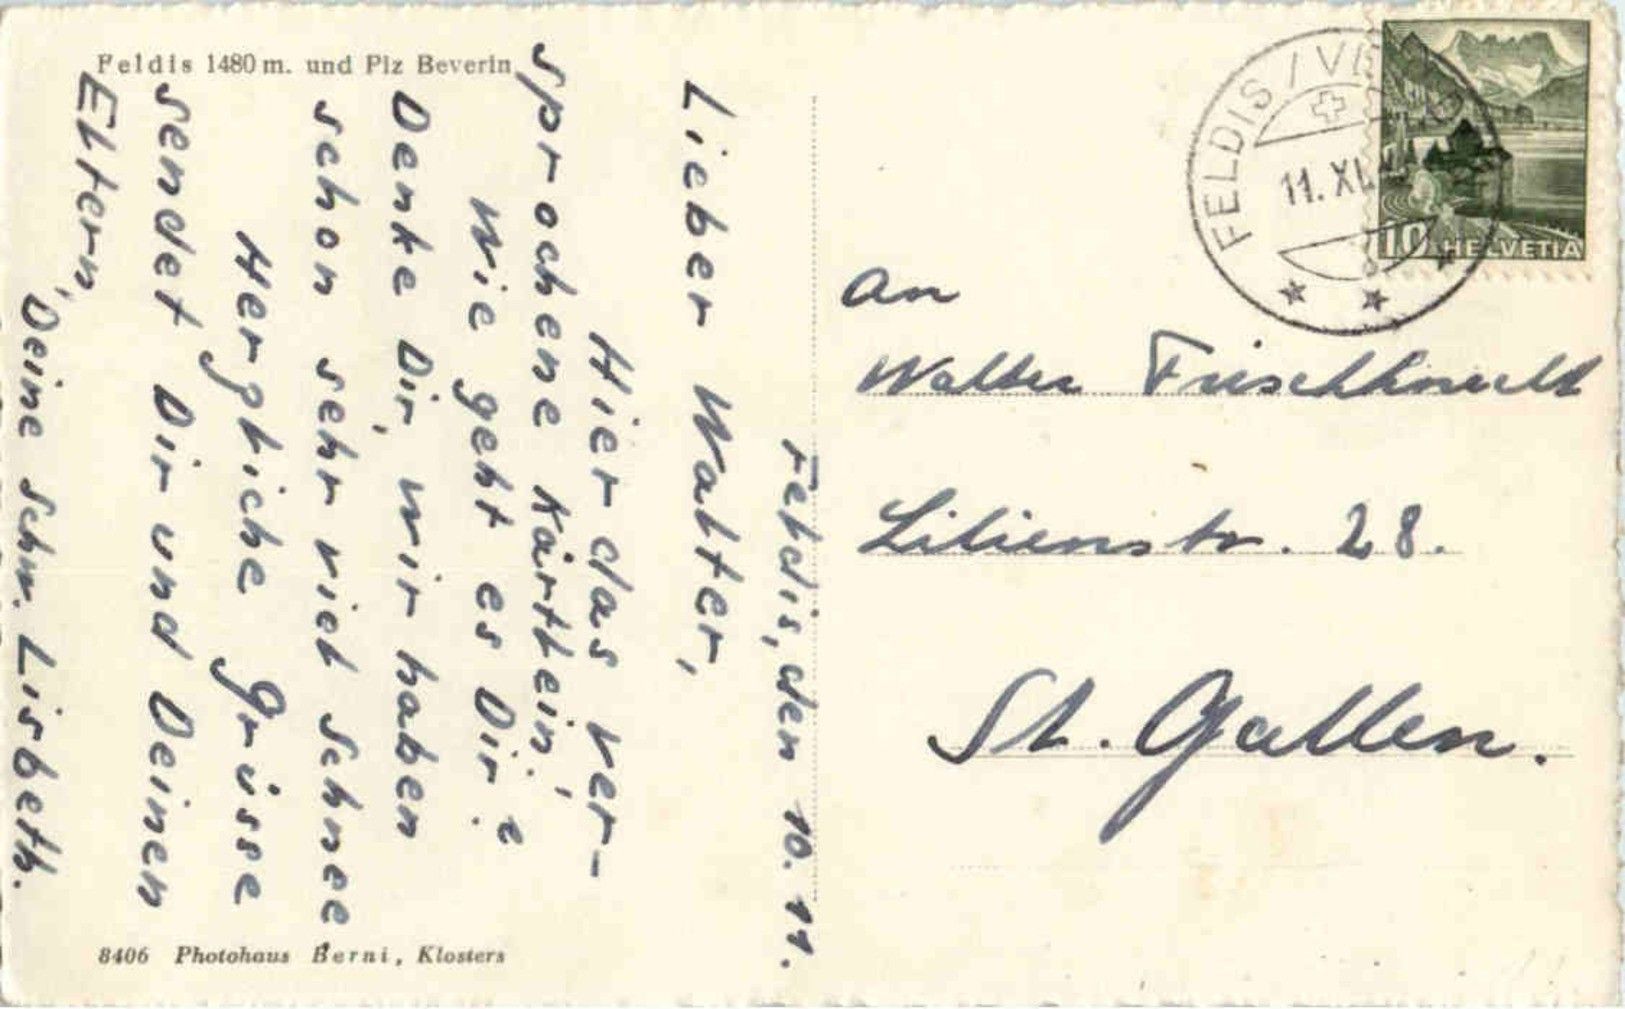 Feldis 1480 m. und Piz Beverin
Feldis, den 10. 11.
Lieber Walter,
Hier das ver-
sprochene Kärtlein.
Wie geht es Dir?
Denke Dir, wir haben
schon sehr viel Schnee.
Herzliche Grüsse
sendet Dir und Deinen
Eltern,
Deine Schw. Lisbeth.
8406 Photohaus Berni, Klosters
FELDIS / VE
11. XI.
10 HELVETIA
An
Walter Frischknecht
Lilienstr. 28.
St. Gallen.